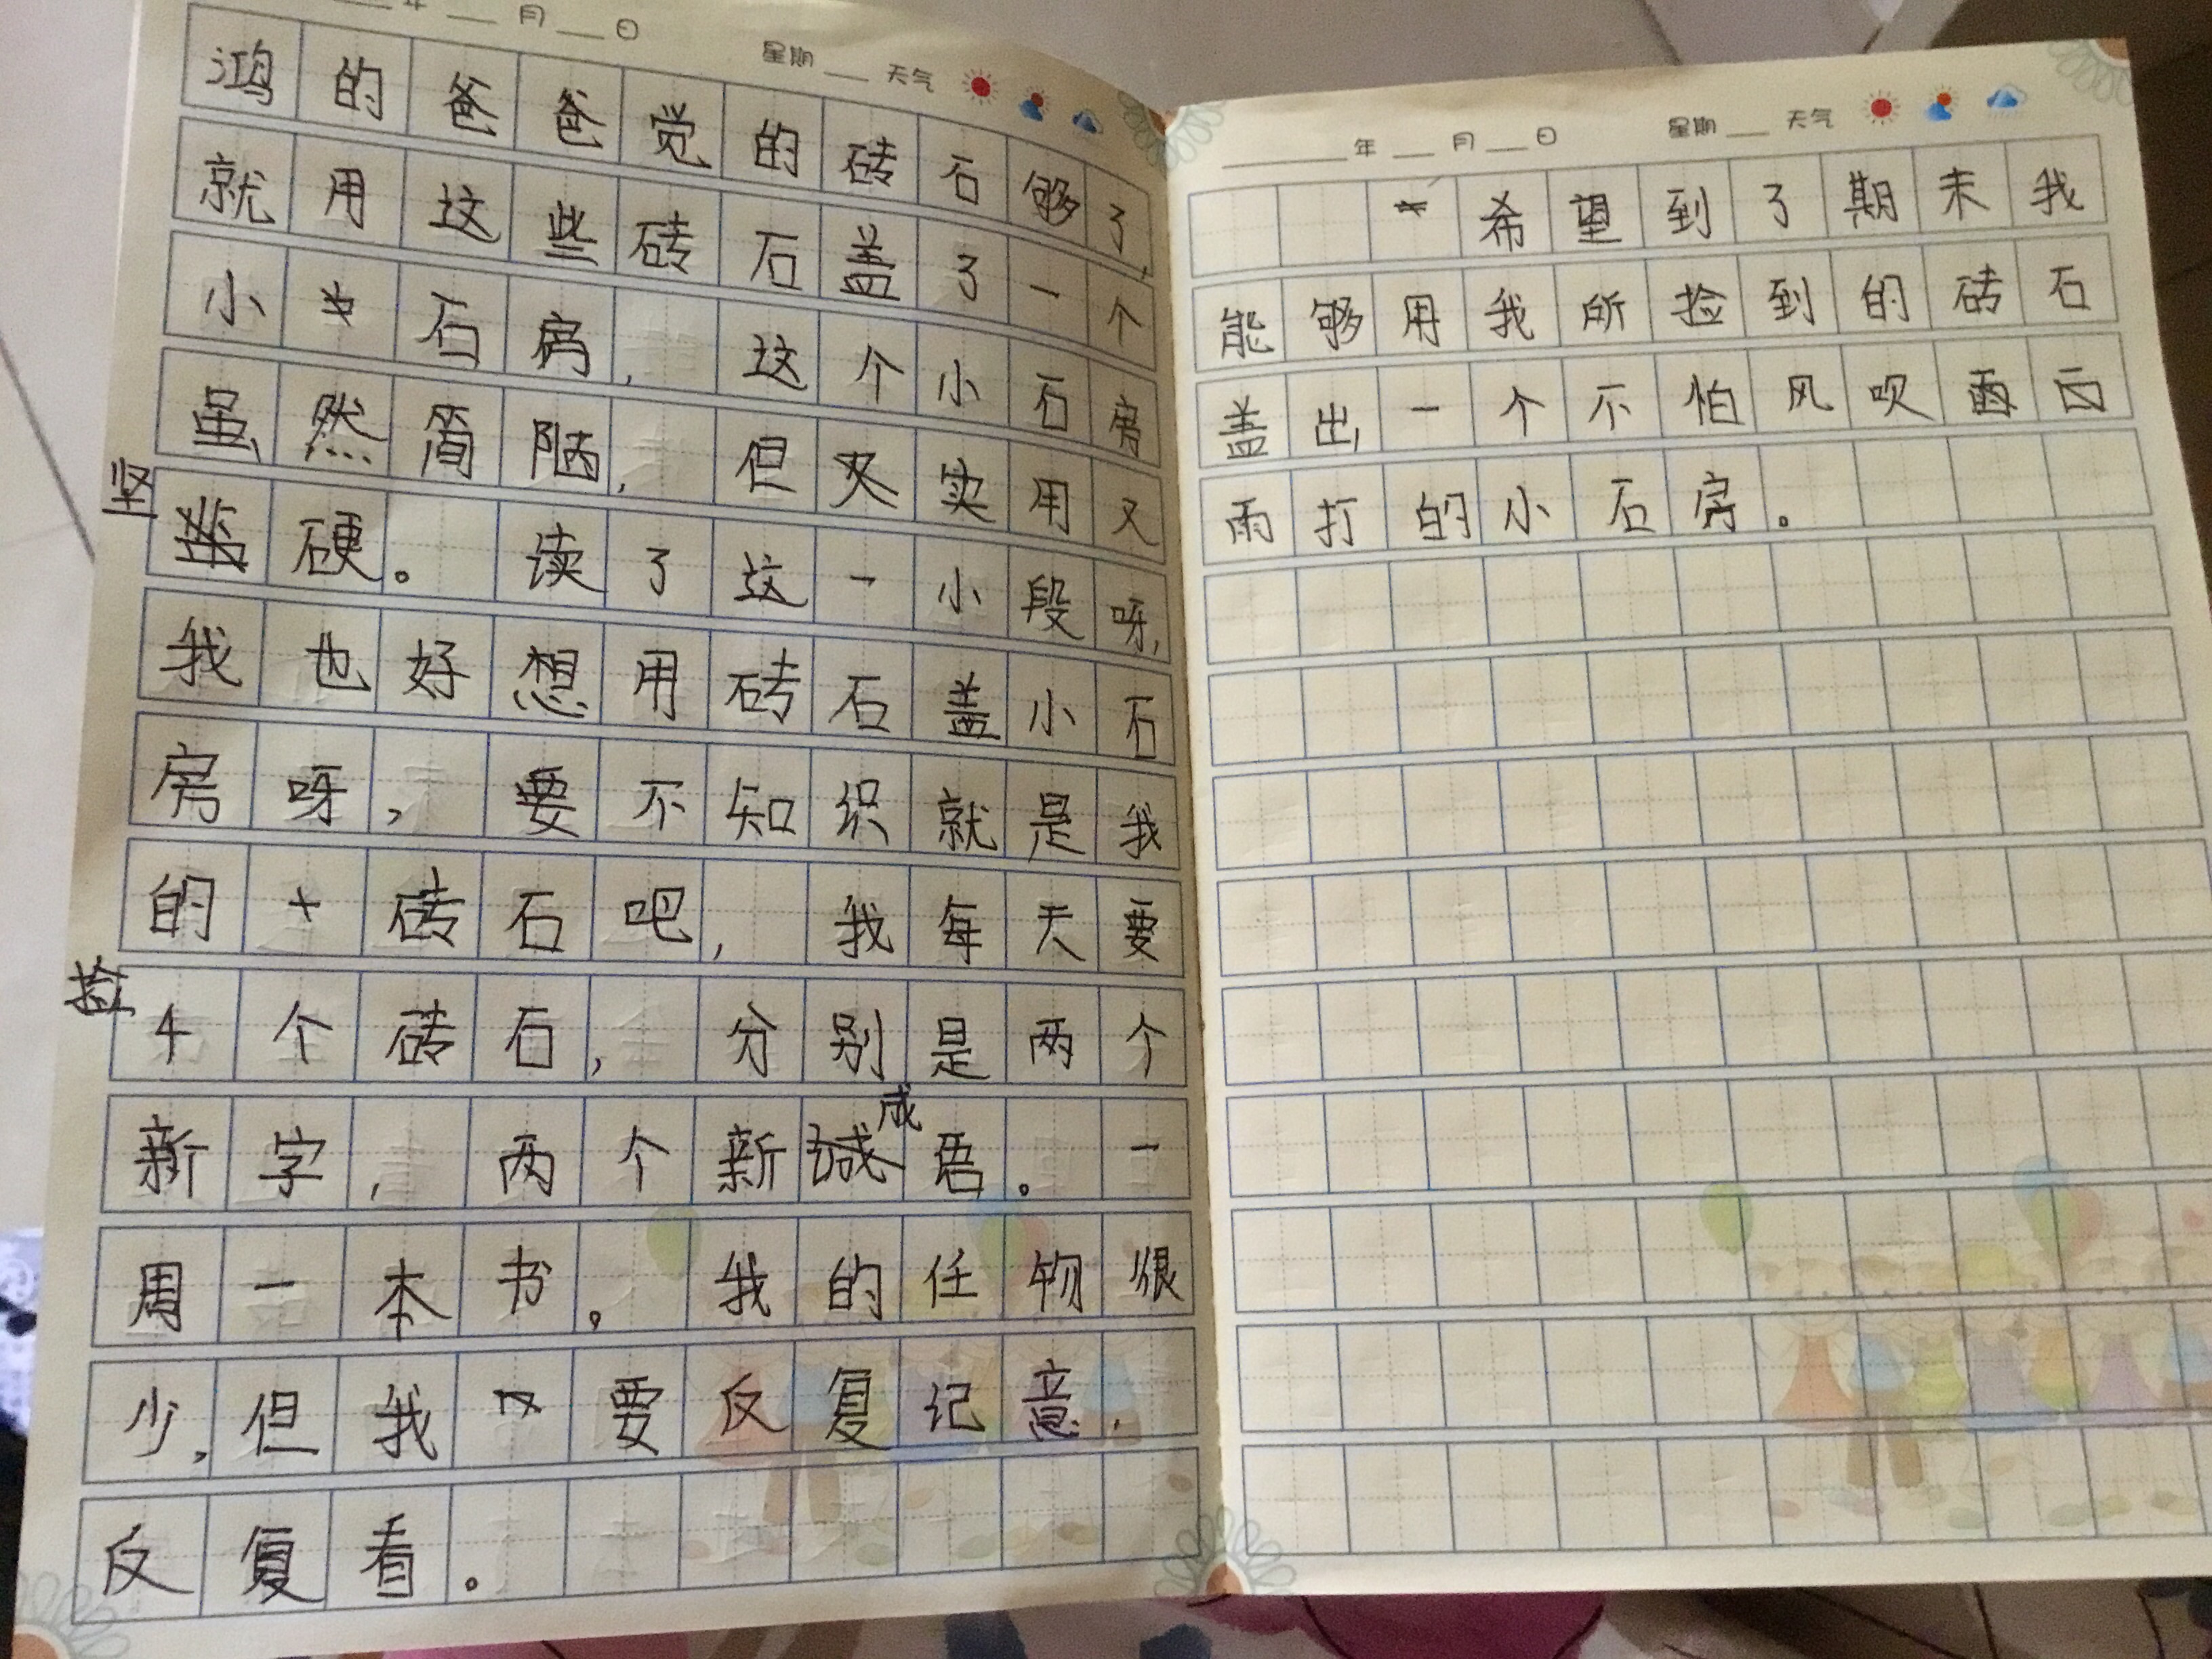 年 月 日 星期 天气
鸿的爸爸觉的砖石够了,
就用这些砖石盖了一个
小石房,这个小石房
虽然简陋,但又实用又
坚硬。读了这一小段呀,
我也好想用砖石盖小石
房呀,要不知识就是我
的砖石吧,我每天要
捡4个砖石,分别是两个
新字,两个新成语。一
周一本书。我的任物很
少,但我要反复记意,
反复看。
年 月 日 星期 天气
希望到了期末我
能够用我所捡到的砖石
盖出一个不怕风吹
雨打的小石房。